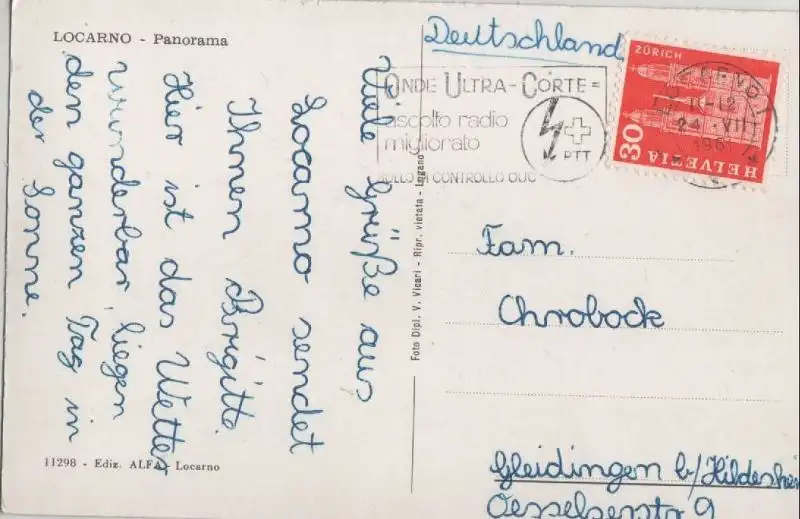 LOCARNO - Panorama
Viele Grüße aus
Locarno sendet
Ihnen Brigitte.
Hier ist das Wetter
wunderbar, liegen
den ganzen Tag in
der Sonne.
11298 - Ediz. ALFA - Locarno
Foto Dipl. V. Vicari - Ripr. vietata - Lugano
Deutschland
ONDE ULTRA-CORTE =
ascolto radio
migliorato
PTT
BOLLO DI CONTROLLO
ZÜRICH
30
HELVETIA
24. VIII
1961
Fam.
Chrobock
Gleidingen b/Hildesheim
Oesselserstr 9